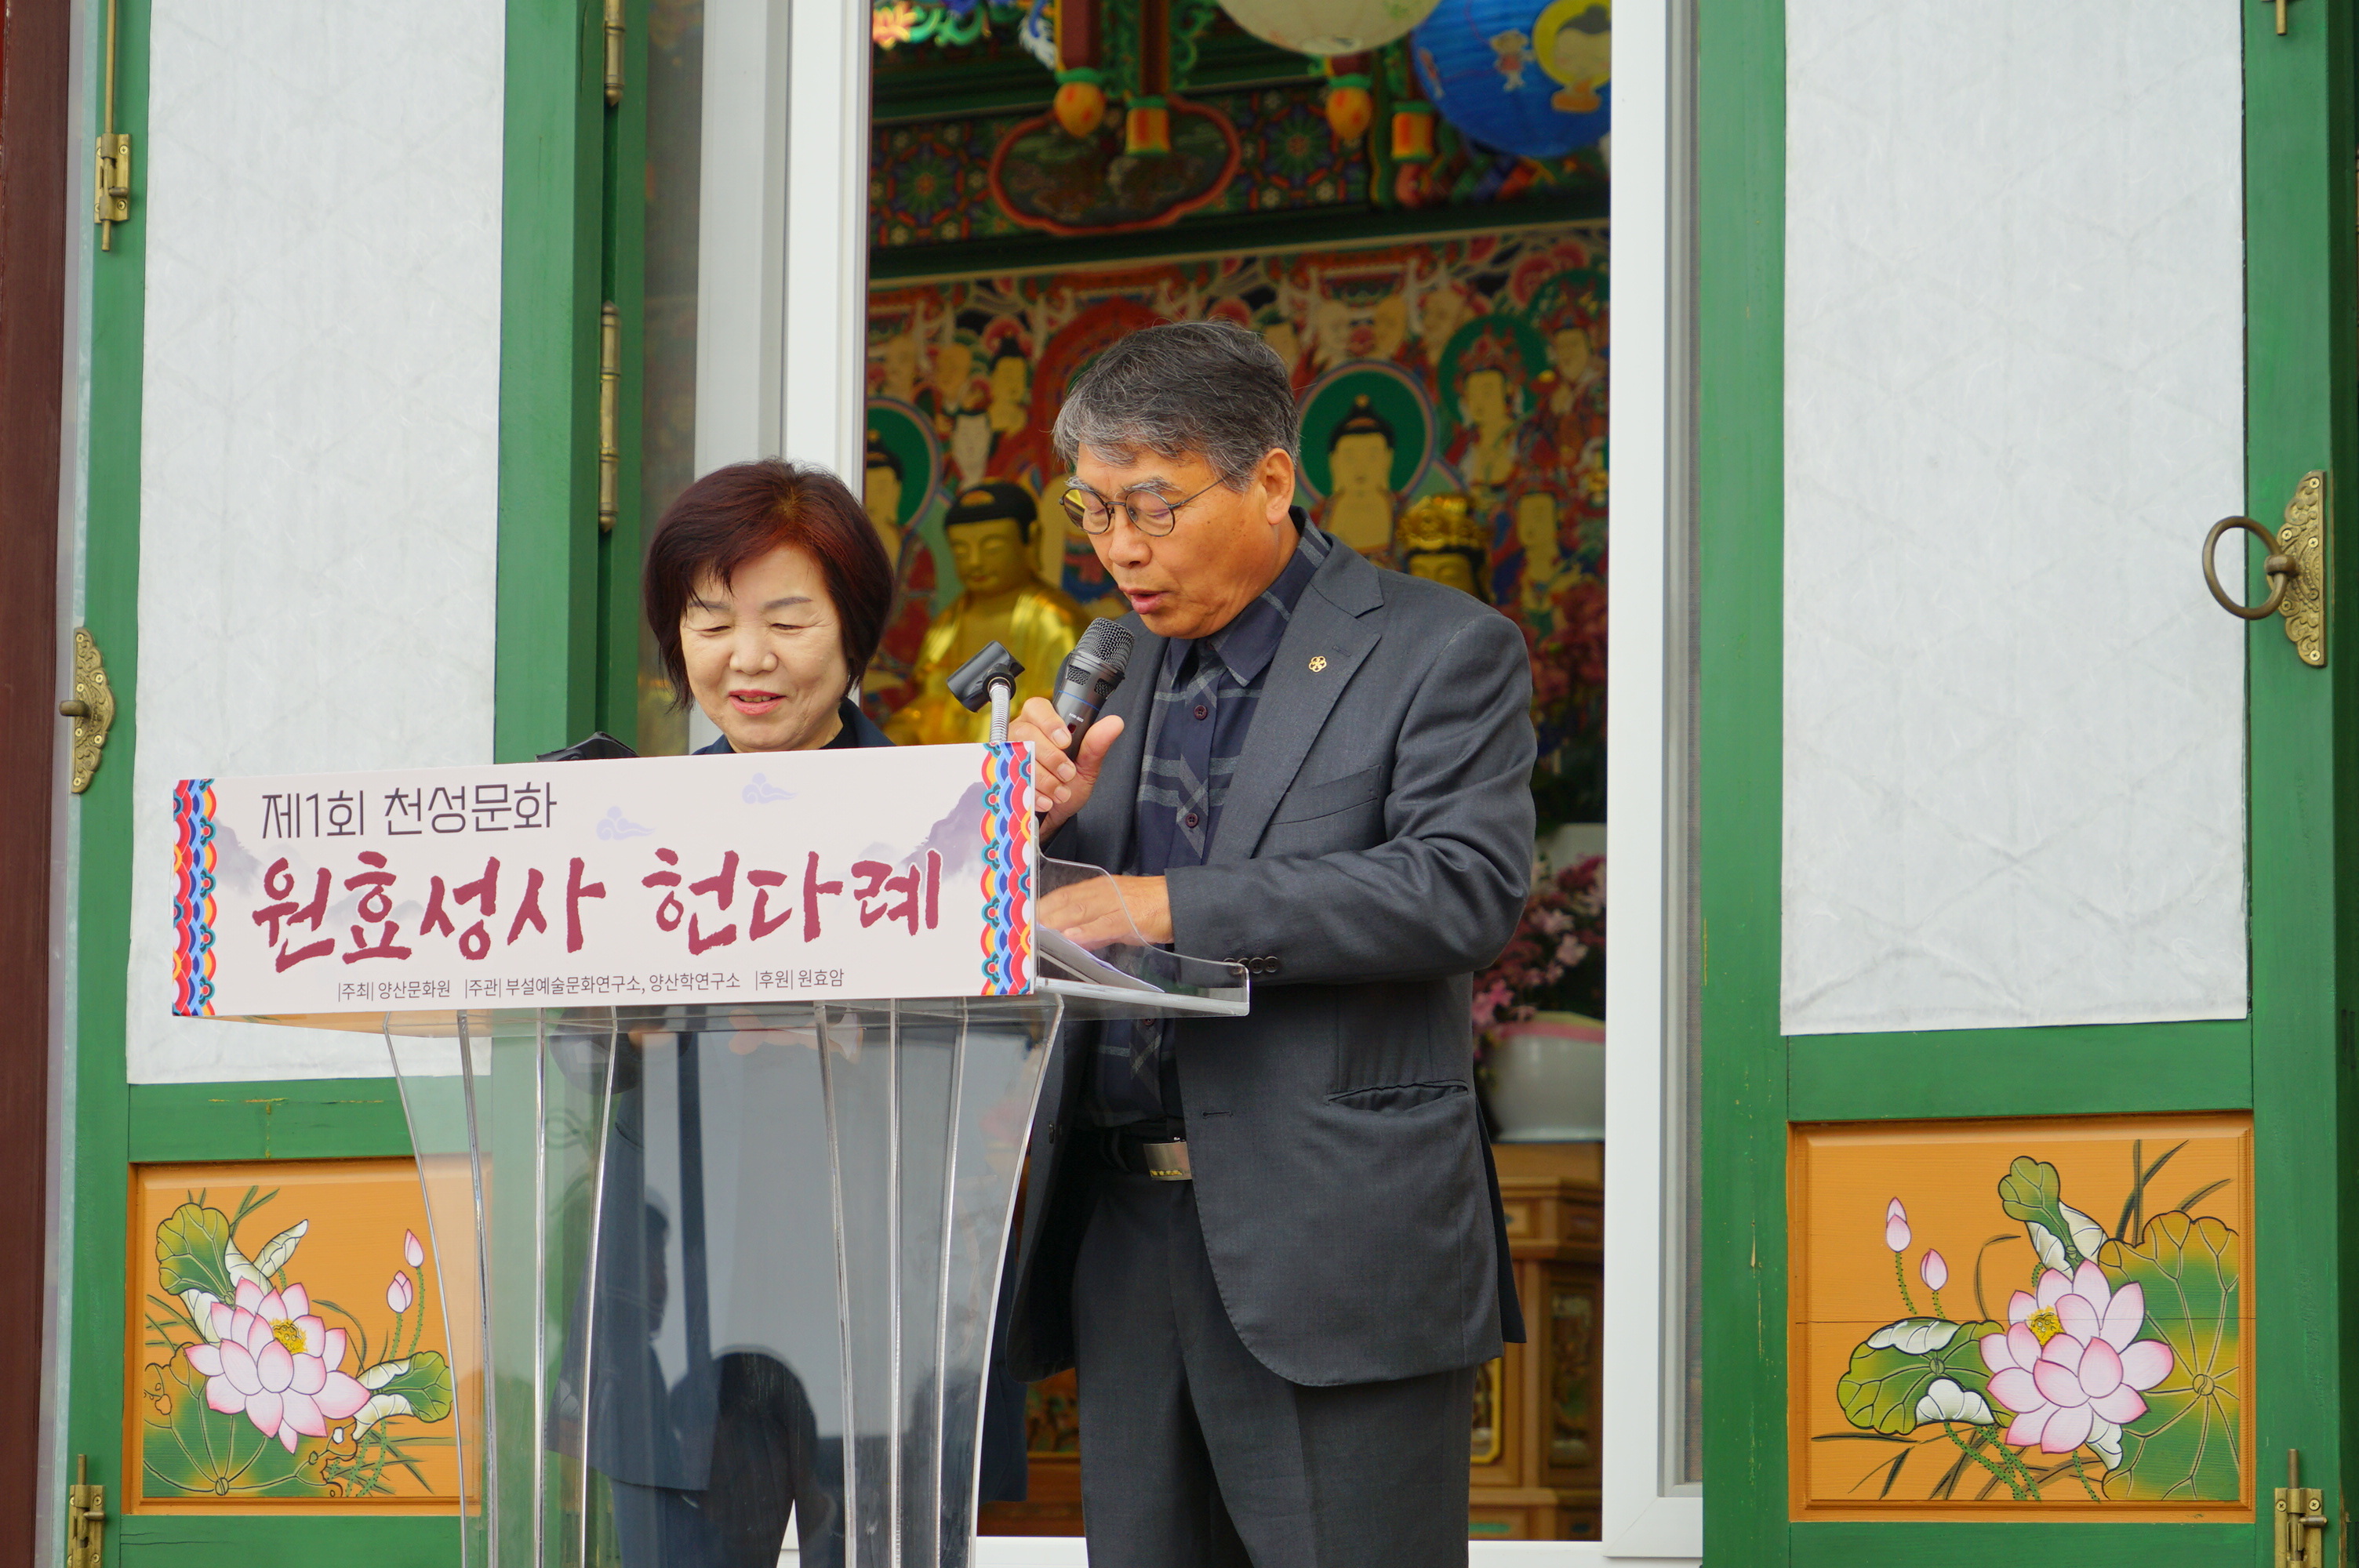 제1회 천성문화
원효성사 헌다례
|주최| 양산문화원 |주관| 부설예술문화연구소, 양산학연구소 |후원| 원효암